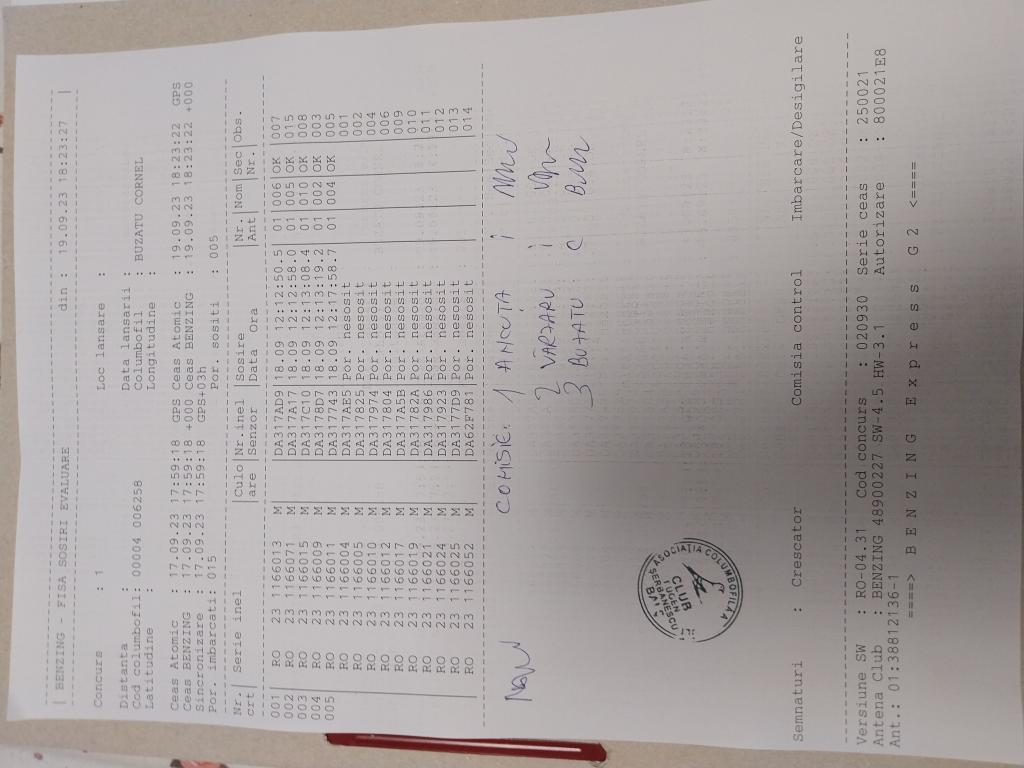 | BENZING - FISA SOSIRI EVALUARE din : 19.09.23 18:23:27 |
Concurs : 1 Loc lansare :
Distanta : Data lansarii :
Cod columbofil: 00004 006258 Columbofil : BUZATU CORNEL
Latitudine : Longitudine :
Ceas Atomic : 17.09.23 17:59:18 GPS Ceas Atomic : 19.09.23 18:23:22 GPS
Ceas BENZING : 17.09.23 17:59:18 +000 Ceas BENZING : 19.09.23 18:23:22 +000
Sincronizare : 17.09.23 17:59:18 GPS+03h
Por. imbarcata: 015 Por. sositi : 005
Nr. | Serie inel |Culo |Nr.inel |Sosire |Nr.|Nom|Sec|Obs.
crt | |are |Senzor |Data Ora |Ant | |Nr.|
001| RO 23 1166013 M |DA317AD9 |18.09 12:12:50.5 01 |006|OK |007
002| RO 23 1166071 M |DA317A17 |18.09 12:12:58.0 01 |005|OK |015
003| RO 23 1166015 M |DA317C10 |18.09 12:13:08.4 01 |010|OK |008
004| RO 23 1166009 M |DA3178D7 |18.09 12:13:19.2 01 |002|OK |003
005| RO 23 1166011 M |DA317743 |18.09 12:17:58.7 01 |004|OK |005
| RO 23 1166004 M |DA317AE5 |Por. nesosit |001
| RO 23 1166005 M |DA317825 |Por. nesosit |002
| RO 23 1166010 M |DA317974 |Por. nesosit |004
| RO 23 1166012 M |DA317804 |Por. nesosit |006
| RO 23 1166017 M |DA317A5B |Por. nesosit |009
| RO 23 1166019 M |DA31782A |Por. nesosit |010
| RO 23 1166021 M |DA317986 |Por. nesosit |011
| RO 23 1166024 M |DA317923 |Por. nesosit |012
| RO 23 1166025 M |DA3177D9 |Por. nesosit |013
| RO 23 1166052 M |DA62F781 |Por. nesosit |014
COMISIE. 1 ANCUTA i
2 VĂRZARU i
3 BUZATU C
ASOCIATIA COLUMBOFILA
CLUB
Semnaturi : Crescator Comisia control Imbarcare/Desigilare
Versiune SW : RO-04.31 Cod concurs : 020930 Serie ceas : 250021
Antena Club : BENZING 48900227 SW-4.5 HW-3.1 Autorizare : 800021E8
Ant.: 01:38812136-1
====> B E N Z I N G E x p r e s s G 2 <====